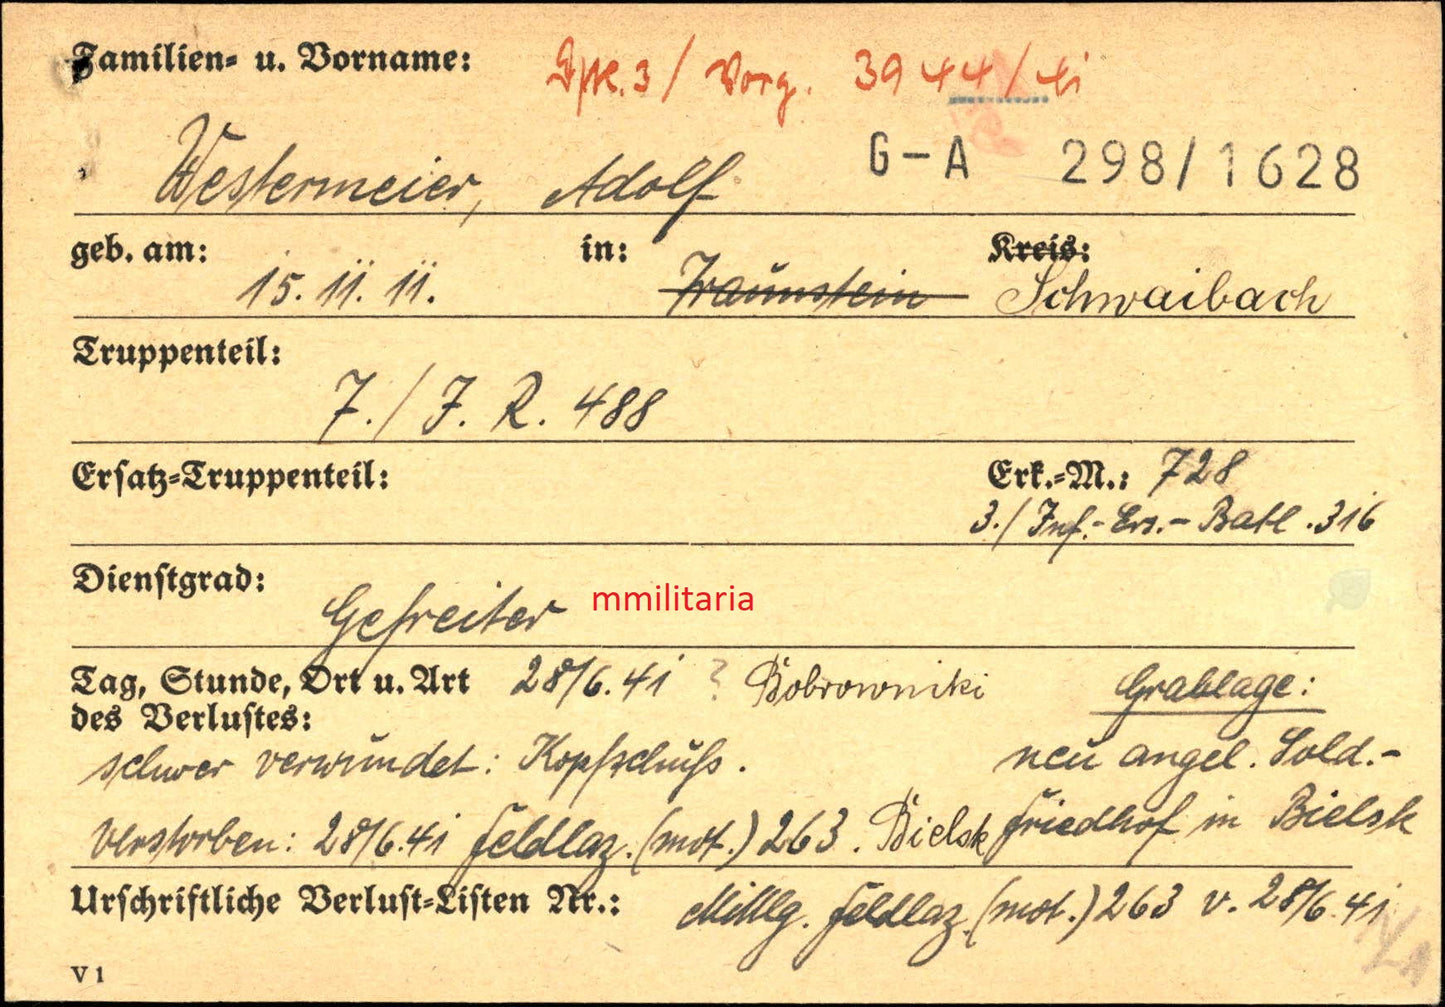 Familien- u. Vorname:
3 / Vorg. 3944/41
Westermeier, Adolf
G-A 298/1628
geb. am: 15.11.11. in: Traunstein Kreis: Schwaibach
Truppenteil:
7./J. R. 488
Ersatz-Truppenteil: Erk.-M.: 728
3./Inf.-Ers.-Batl. 316
Dienstgrad:
Gefreiter
mmilitaria
Tag, Stunde, Ort u. Art 28/6.41 ? Bobrowniki Grablage:
des Verlustes:
schwer verwundet: Kopfschuß. neu angel. Sold.-
verstorben: 28/6.41 Feldlaz. (mot.) 263. Bielsk Friedhof in Bielsk
Urschriftliche Verlust-Listen Nr.: Mittlg. Feldlaz. (mot.) 263 v. 28/6.41
V 1